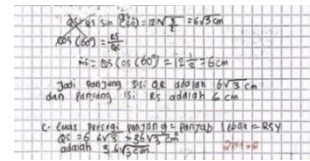 QS = QS sin (60°) = 12 √3/2 = 6√3 cm
cos (60°) = RS/QS
RS = QS cos (60°) = 12 1/2 = 6 cm
Jadi Panjang Sisi QR adalah 6√3 cm
dan Panjang Sisi RS adalah 6 cm
C- Luas Persegi Panjang = Panjang x Lebar = RS x
QS = 6 . 6√3 = 36√3 cm²
adalah 36√3 cm²